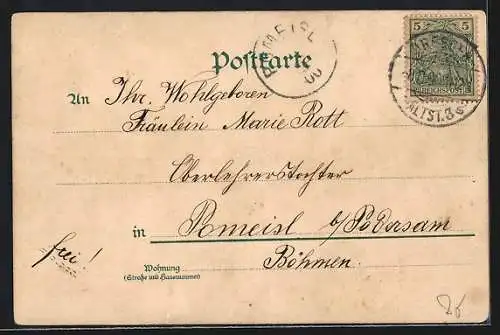 5 5
REICHSPOST
DRESDEN
ALTST. 3 s
POMEISL
00
Postkarte
An Ihr. Wohlgeboren
Fräulein Marie Rott
Oberlehrerstochter
in Pomeisl b/Podersam
Böhmen.
frei!
Wohnung
(Straße und Hausnummer)